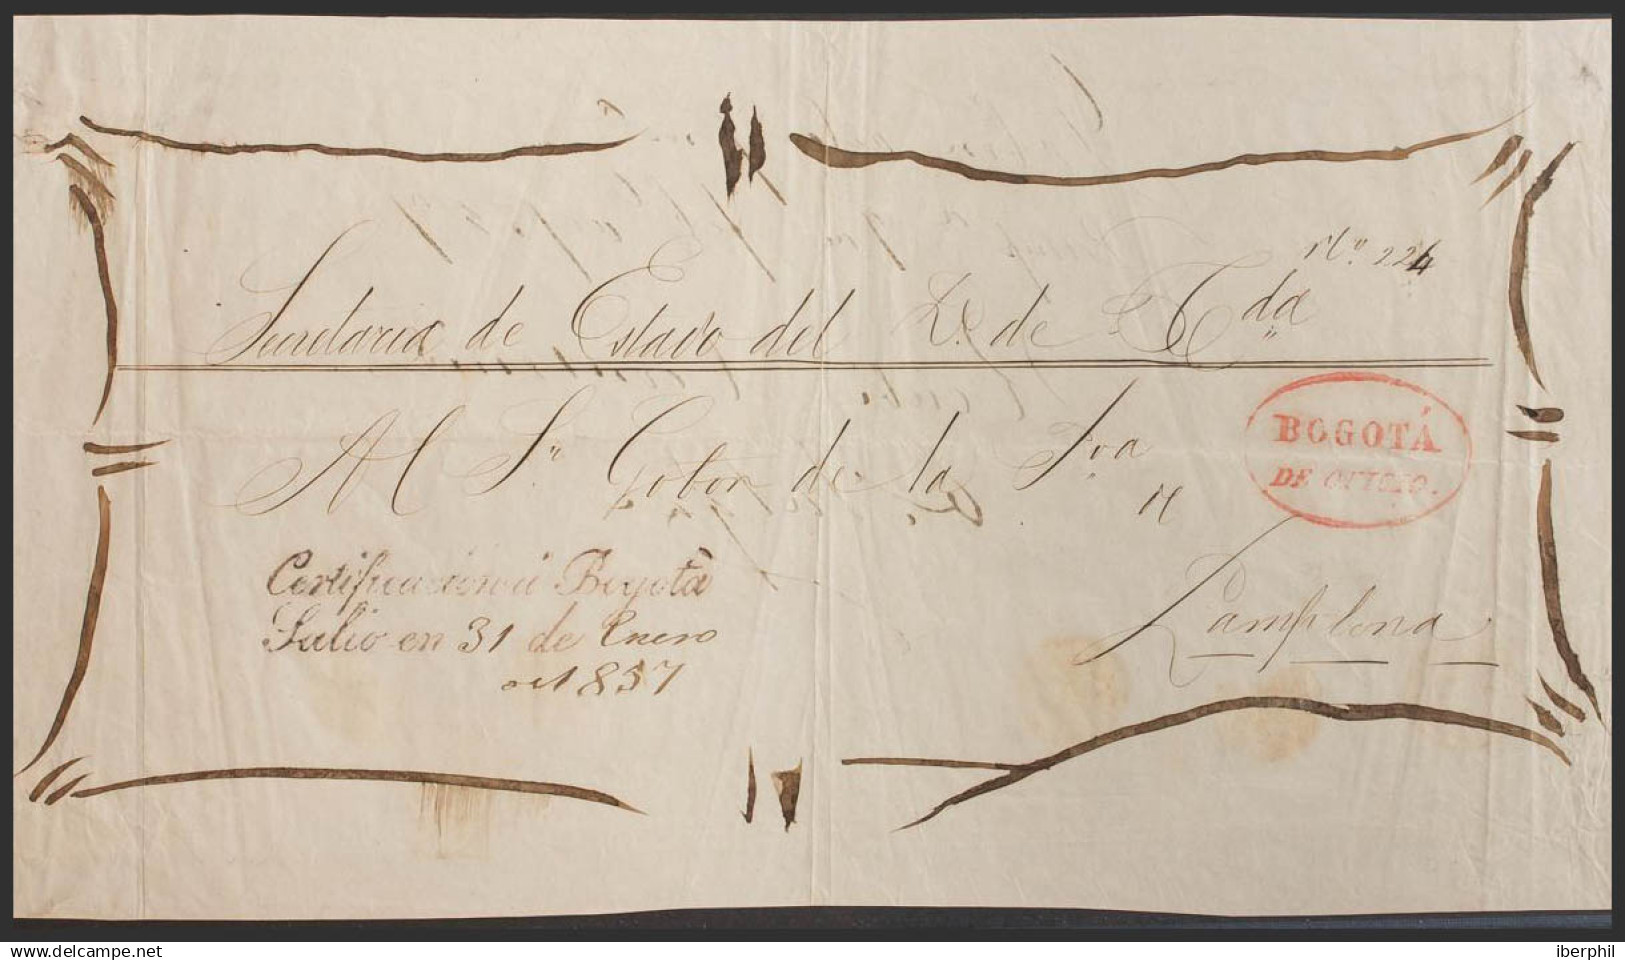 No. 224
Secretaria de Estado del D. de Hda
BOGOTÁ
DE OFICIO.
Al Sr Gobor de la Pva
de
Pamplona
Certificacion Bogotá
Salio en 31 de Enero
de 1857
www.delcampe.net
iberphil